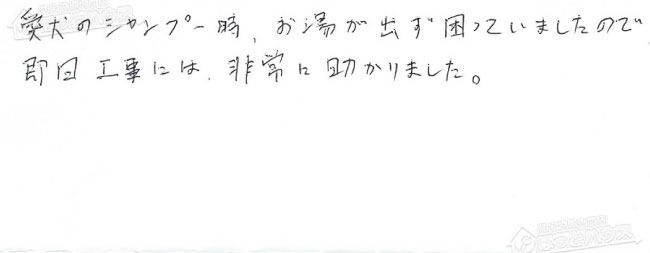 愛犬のシャンプー時、お湯が出ず困っていましたので
即日工事には、非常に助かりました。